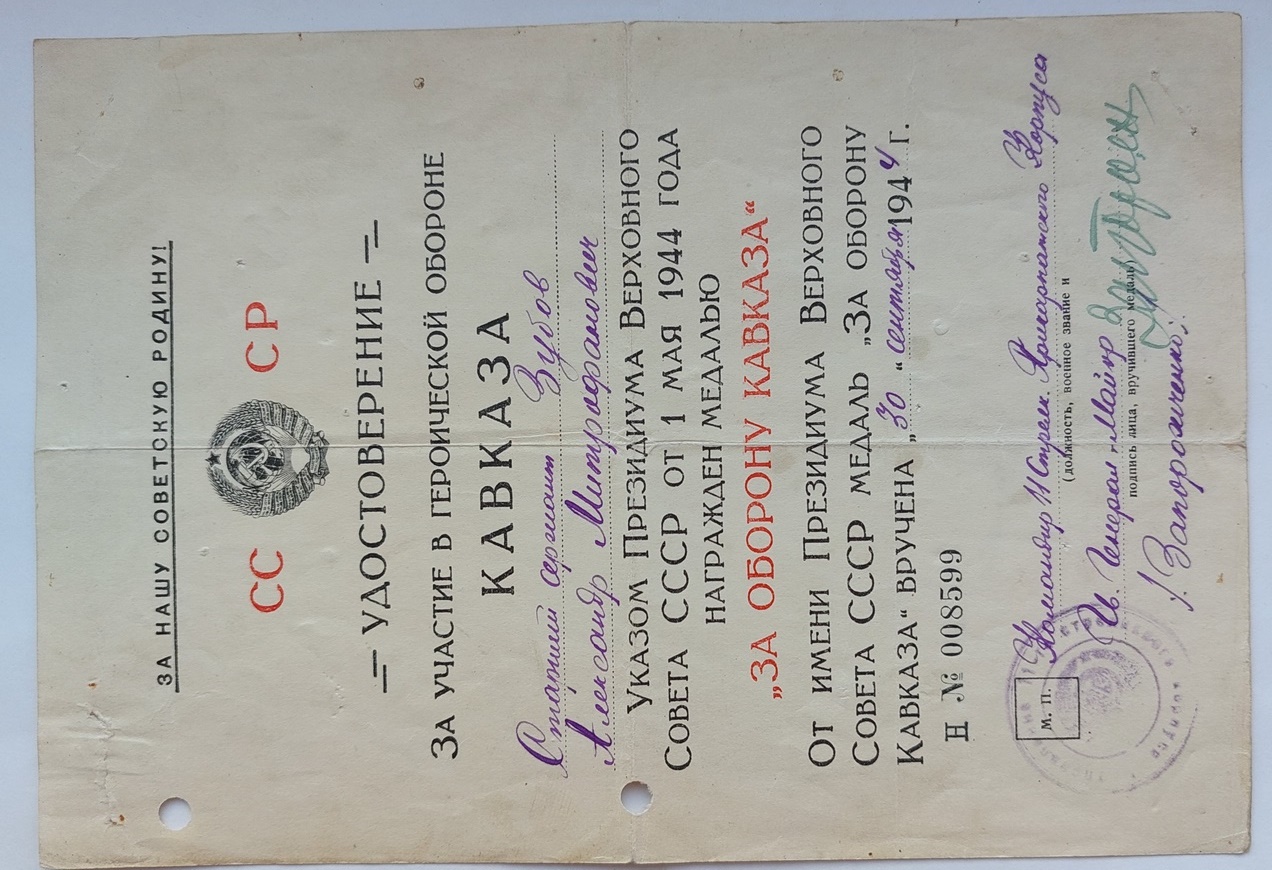 ЗА НАШУ СОВЕТСКУЮ РОДИНУ!
СС СР
УДОСТОВЕРЕНИЕ
ЗА УЧАСТИЕ В ГЕРОИЧЕСКОЙ ОБОРОНЕ
КАВКАЗА
Старший сержант Зубов
Александр Митрофанович
УКАЗОМ ПРЕЗИДИУМА ВЕРХОВНОГО
СОВЕТА СССР ОТ 1 МАЯ 1944 ГОДА
НАГРАЖДЕН МЕДАЛЬЮ
„ЗА ОБОРОНУ КАВКАЗА“
ОТ ИМЕНИ ПРЕЗИДИУМА ВЕРХОВНОГО
СОВЕТА СССР МЕДАЛЬ „ЗА ОБОРОНУ
КАВКАЗА“ ВРУЧЕНА „30“ сентября 1944 Г.
Н № 008599
Командир 11 Стрелк. Прикарпатского Корпуса
(должность, военное звание и
Гв. Генерал-Майор
подпись лица, вручившего медаль)
/. Запорожченко./
М. П.